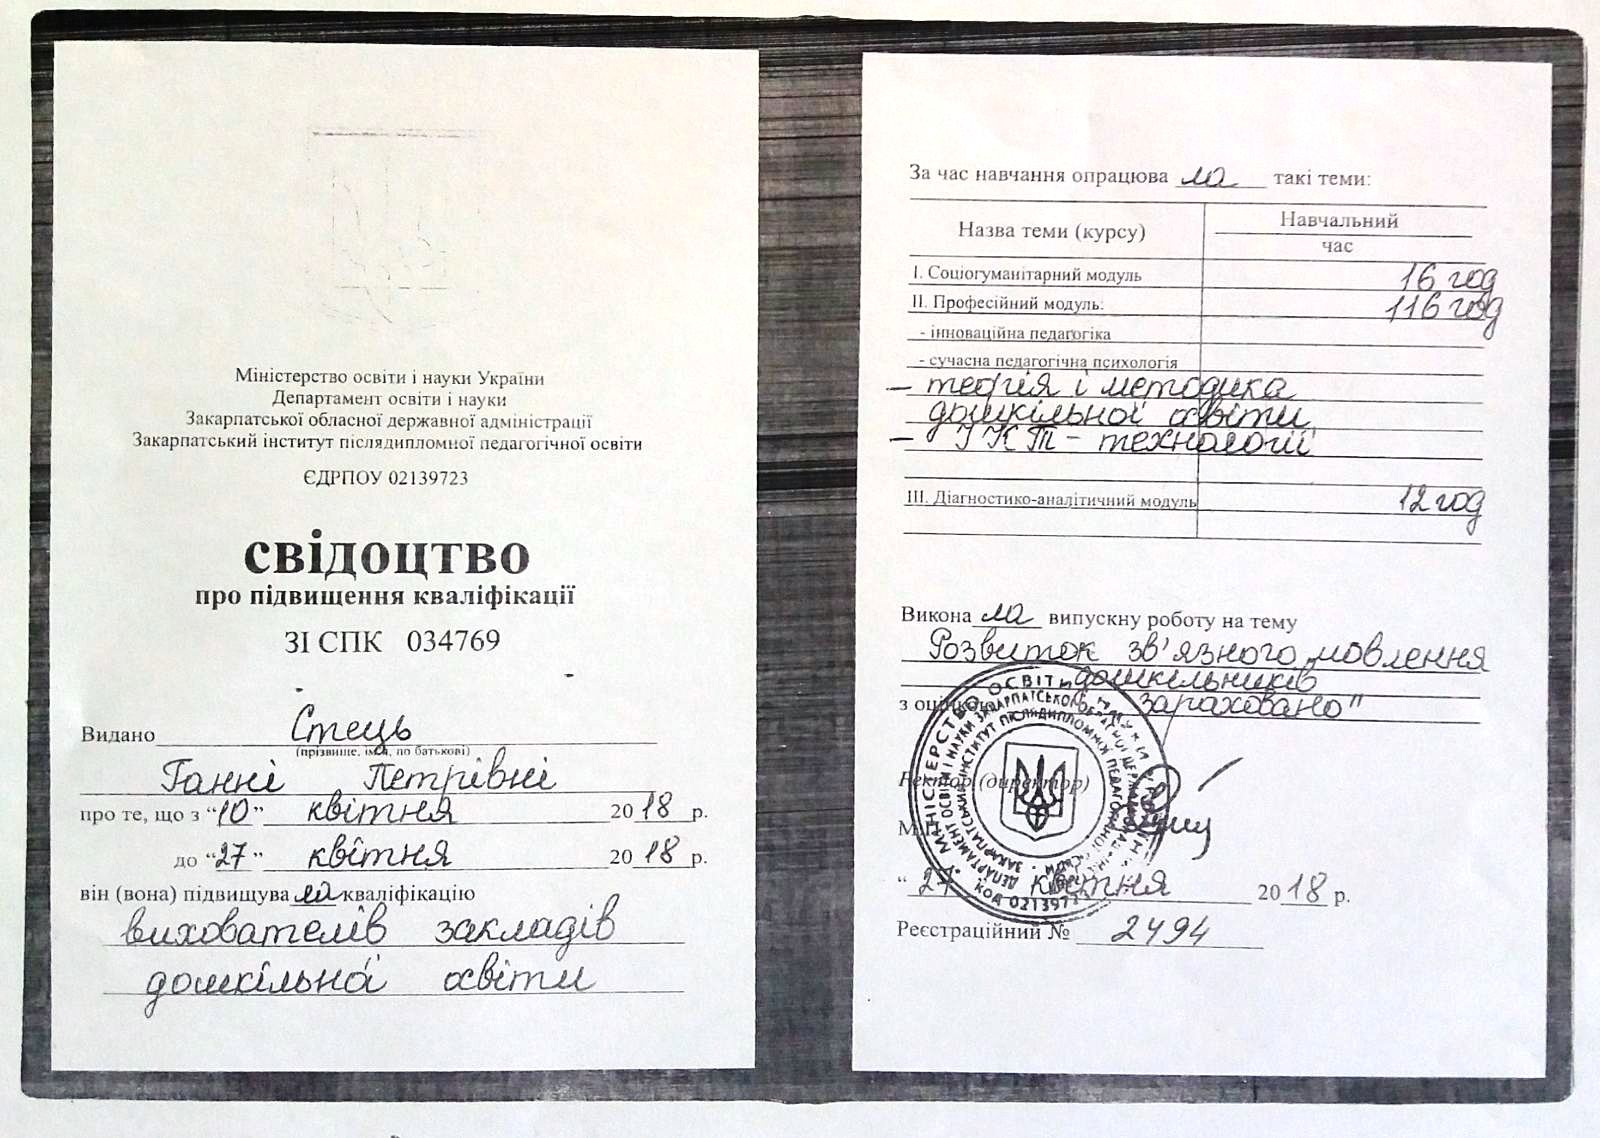 Міністерство освіти і науки України
Департамент освіти і науки
Закарпатської обласної державної адміністрації
Закарпатський інститут післядипломної педагогічної освіти
ЄДРПОУ 02139723
СВІДОЦТВО
про підвищення кваліфікації
ЗІ СПК 034769
Видано Стець
(прізвище, імя, по батькові)
Ганні Петрівні
про те, що з “10” квітня 2018 р.
до “27” квітня 2018 р.
він (вона) підвищувала кваліфікацію
вихователів закладів
дошкільної освіти
За час навчання опрацювала такі теми:
Назва теми (курсу) Навчальний
час
І. Соціогуманітарний модуль 16 год
ІІ. Професійний модуль: 116 год
- інноваційна педагогіка
- сучасна педагогічна психологія
- теорія і методика
дошкільної освіти
- ІКТ - технології
ІІІ. Діагностико-аналітичний модуль 12 год
Виконала випускну роботу на тему
Розвиток зв'язного мовлення
дошкільників
з оцінкою зараховано"
Ректор (директор)
М.П.
“27” квітня 2018 р.
Реєстраційний № 2494
МІНІСТЕРСТВО ОСВІТИ І НАУКИ
КОД 02139723